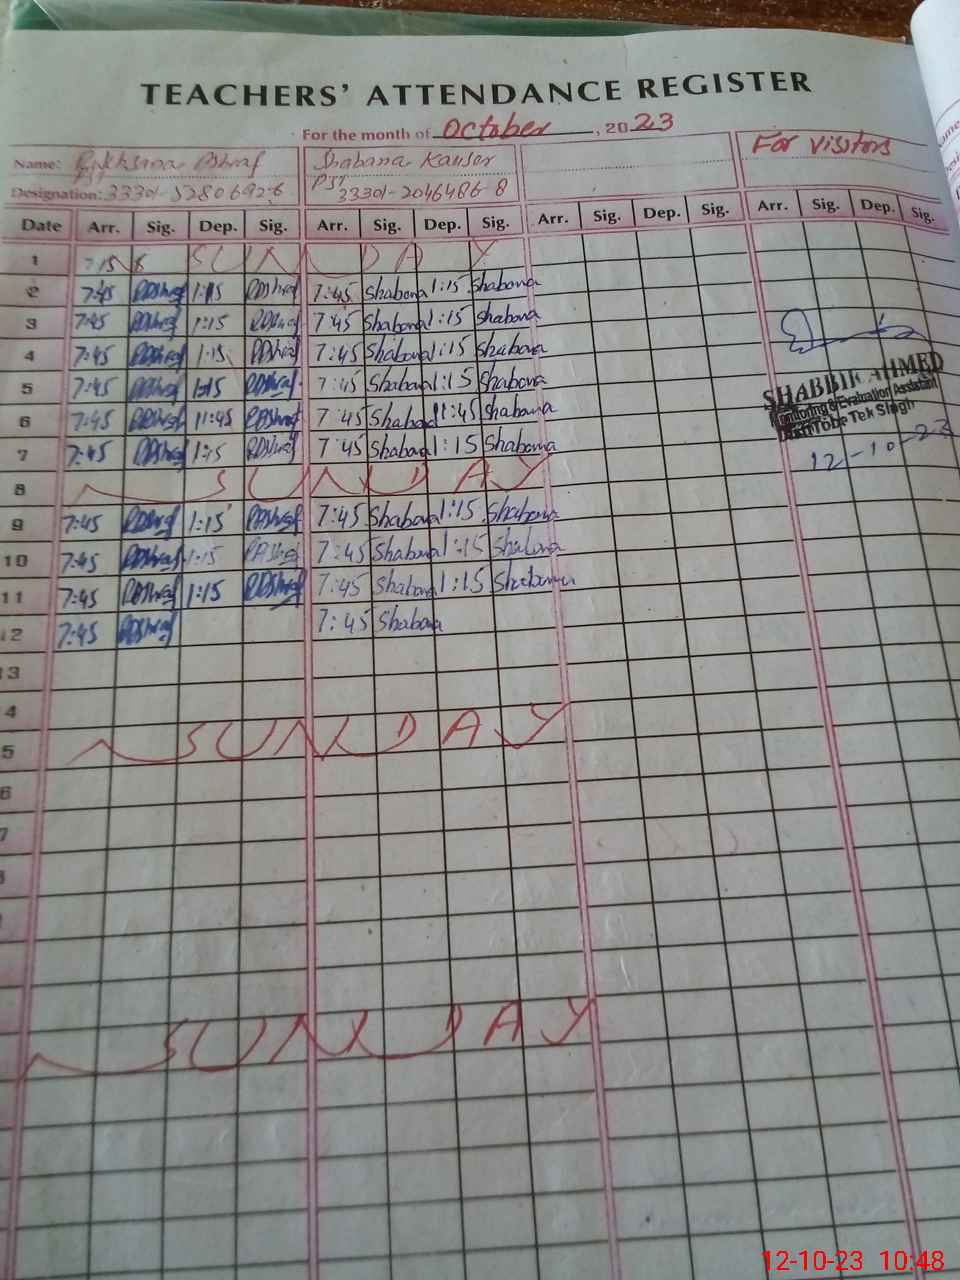 TEACHERS' ATTENDANCE REGISTER
For the month of October, 2023
Name: Ashraf Shabana Kauser For Visitors
Designation: PST 33301-2046486-8
Date Arr. Sig. Dep. Sig. Arr. Sig. Dep. Sig. Arr. Sig. Dep. Sig. Arr. Sig. Dep. Sig.
1 SUNDAY
2 7:45 RAshraf 1:15 RAshraf 7:45 Shabana 1:15 Shabana
3 7:45 RAshraf 1:15 RAshraf 7:45 Shabana 1:15 Shabana
4 7:45 RAshraf 1:15 RAshraf 7:45 Shabana 1:15 Shabana
5 7:45 RAshraf 1:15 RAshraf 7:45 Shabana 1:15 Shabana
6 7:45 RAshraf 11:45 RAshraf 7:45 Shabana 11:45 Shabana
7 7:45 RAshraf 1:15 RAshraf 7:45 Shabana 1:15 Shabana
SHABBIR AHMED
Monitoring & Evaluation Assistant
Toba Tek Singh
12-10-23
8 SUNDAY
9 7:45 RAshraf 1:15 RAshraf 7:45 Shabana 1:15 Shabana
10 7:45 RAshraf 1:15 RAshraf 7:45 Shabana 1:15 Shabana
11 7:45 RAshraf 1:15 RAshraf 7:45 Shabana 1:15 Shabana
12 7:45 RAshraf 7:45 Shabana
13
4
5 SUNDAY
6
7
SUNDAY
12-10-23 10:48